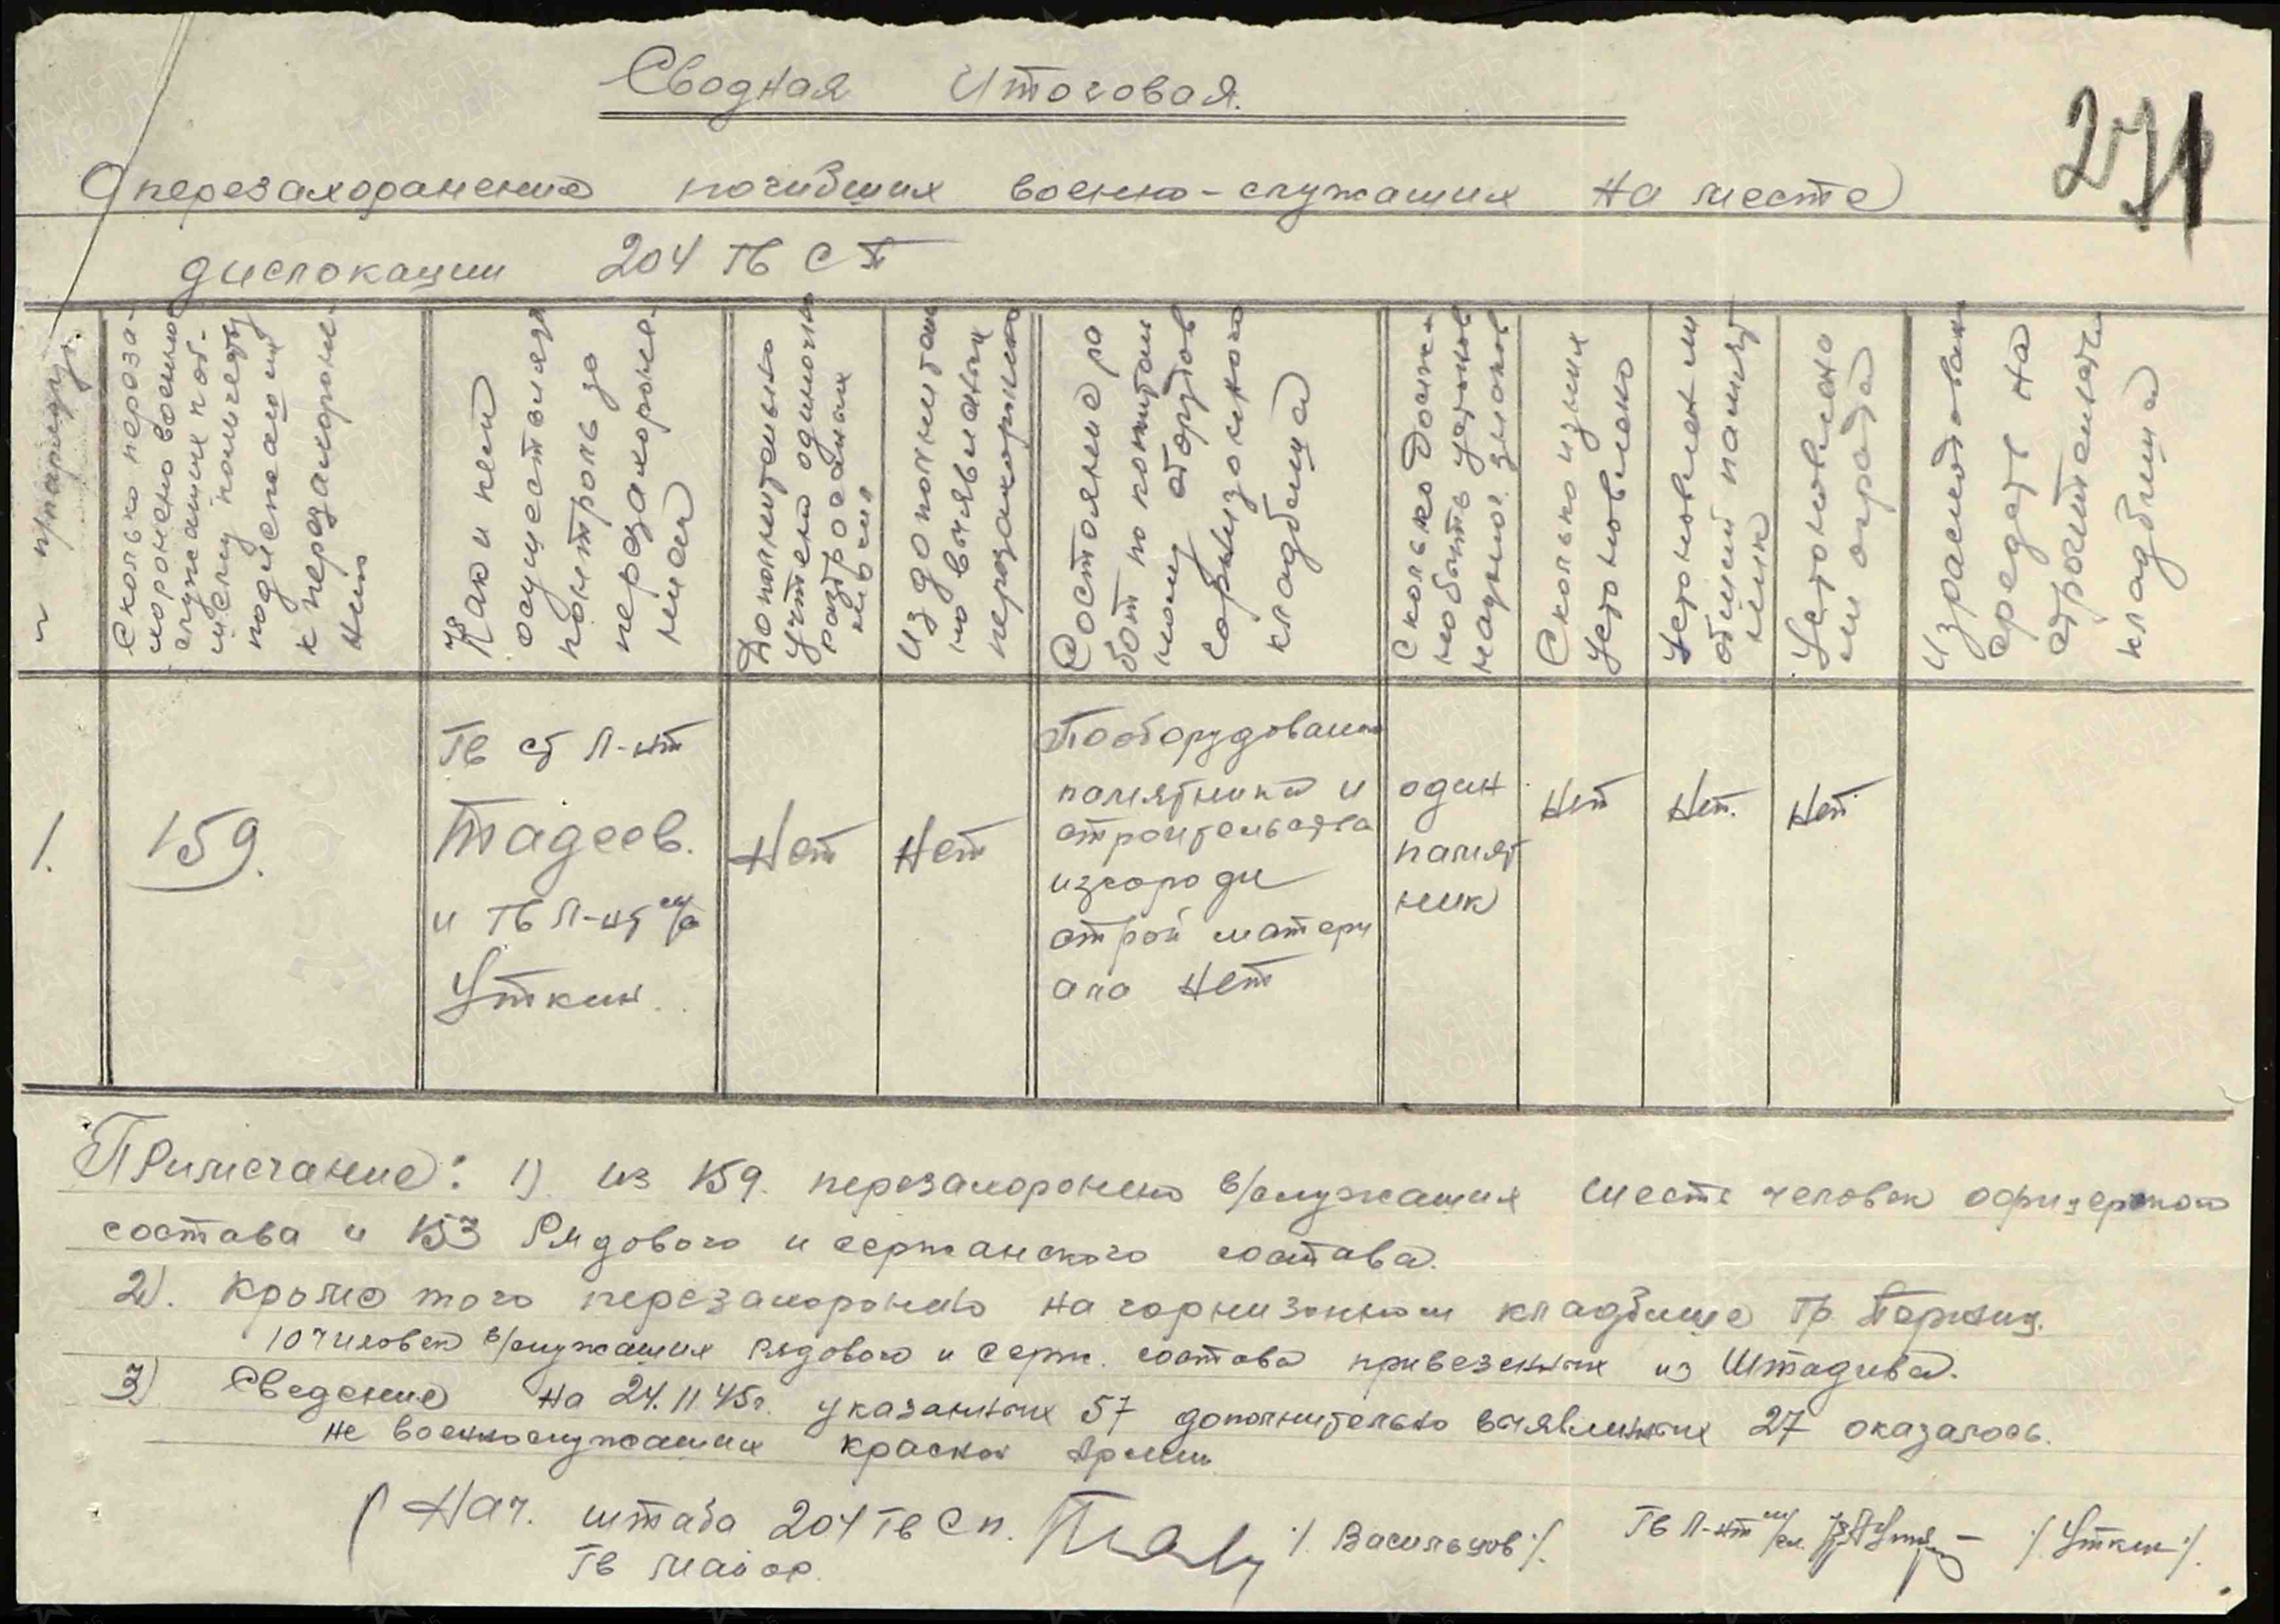 Сводная Итоговая.
271
О перезахоранение погибших военно-служащих на месте
дислокации 204 Гв СП
Сколько переза-
хоронено военно
служащих по об-
щему количеству
подлежащих
к перезахороне-
нию
Как и кем
осуществляя
контроль за
перезахороне-
нием
Дополнительно
учтено одиночн
разбросанных
могил
Из дополнитель
но выявленых
перезахоронено
Состояние ра
бот по
оборудов
гарнизонного
кладбища
Сколько должн
но быть установ
Сколько из них
установлено
Установлен ли
общий памят
ник
Установлена
ли ограда
Израсходован
средств на
строительств
кладбища
1.
159.
Гв ст л-нт
Тадеев.
и Гв л-нт м/с
Уткин.
Нет
Нет
По оборудованию
памятника и
строительства
изгороди
строй матери
ала нет
один
памят
ник
Нет
Нет.
Нет
Примечание: 1) из 159 перезахоронено в/служащих шесть человек офицерского
состава и 153 Рядового и сержанского состава.
2). Кроме того перезахоронено на гарнизонном кладбище гр.
10 человек в/служащих рядового и серж. состава привезенных из Штадива.
3) Сведение на 24.11.45г. указанных 57 дополнительно выявленных 27 оказалось.
не военнослужащих красной Армии
Нач. штаба 204 Гв Сп. /. Васильцов ./. Гв л-нт м/сл. /. Уткин ./.
Гв майор.